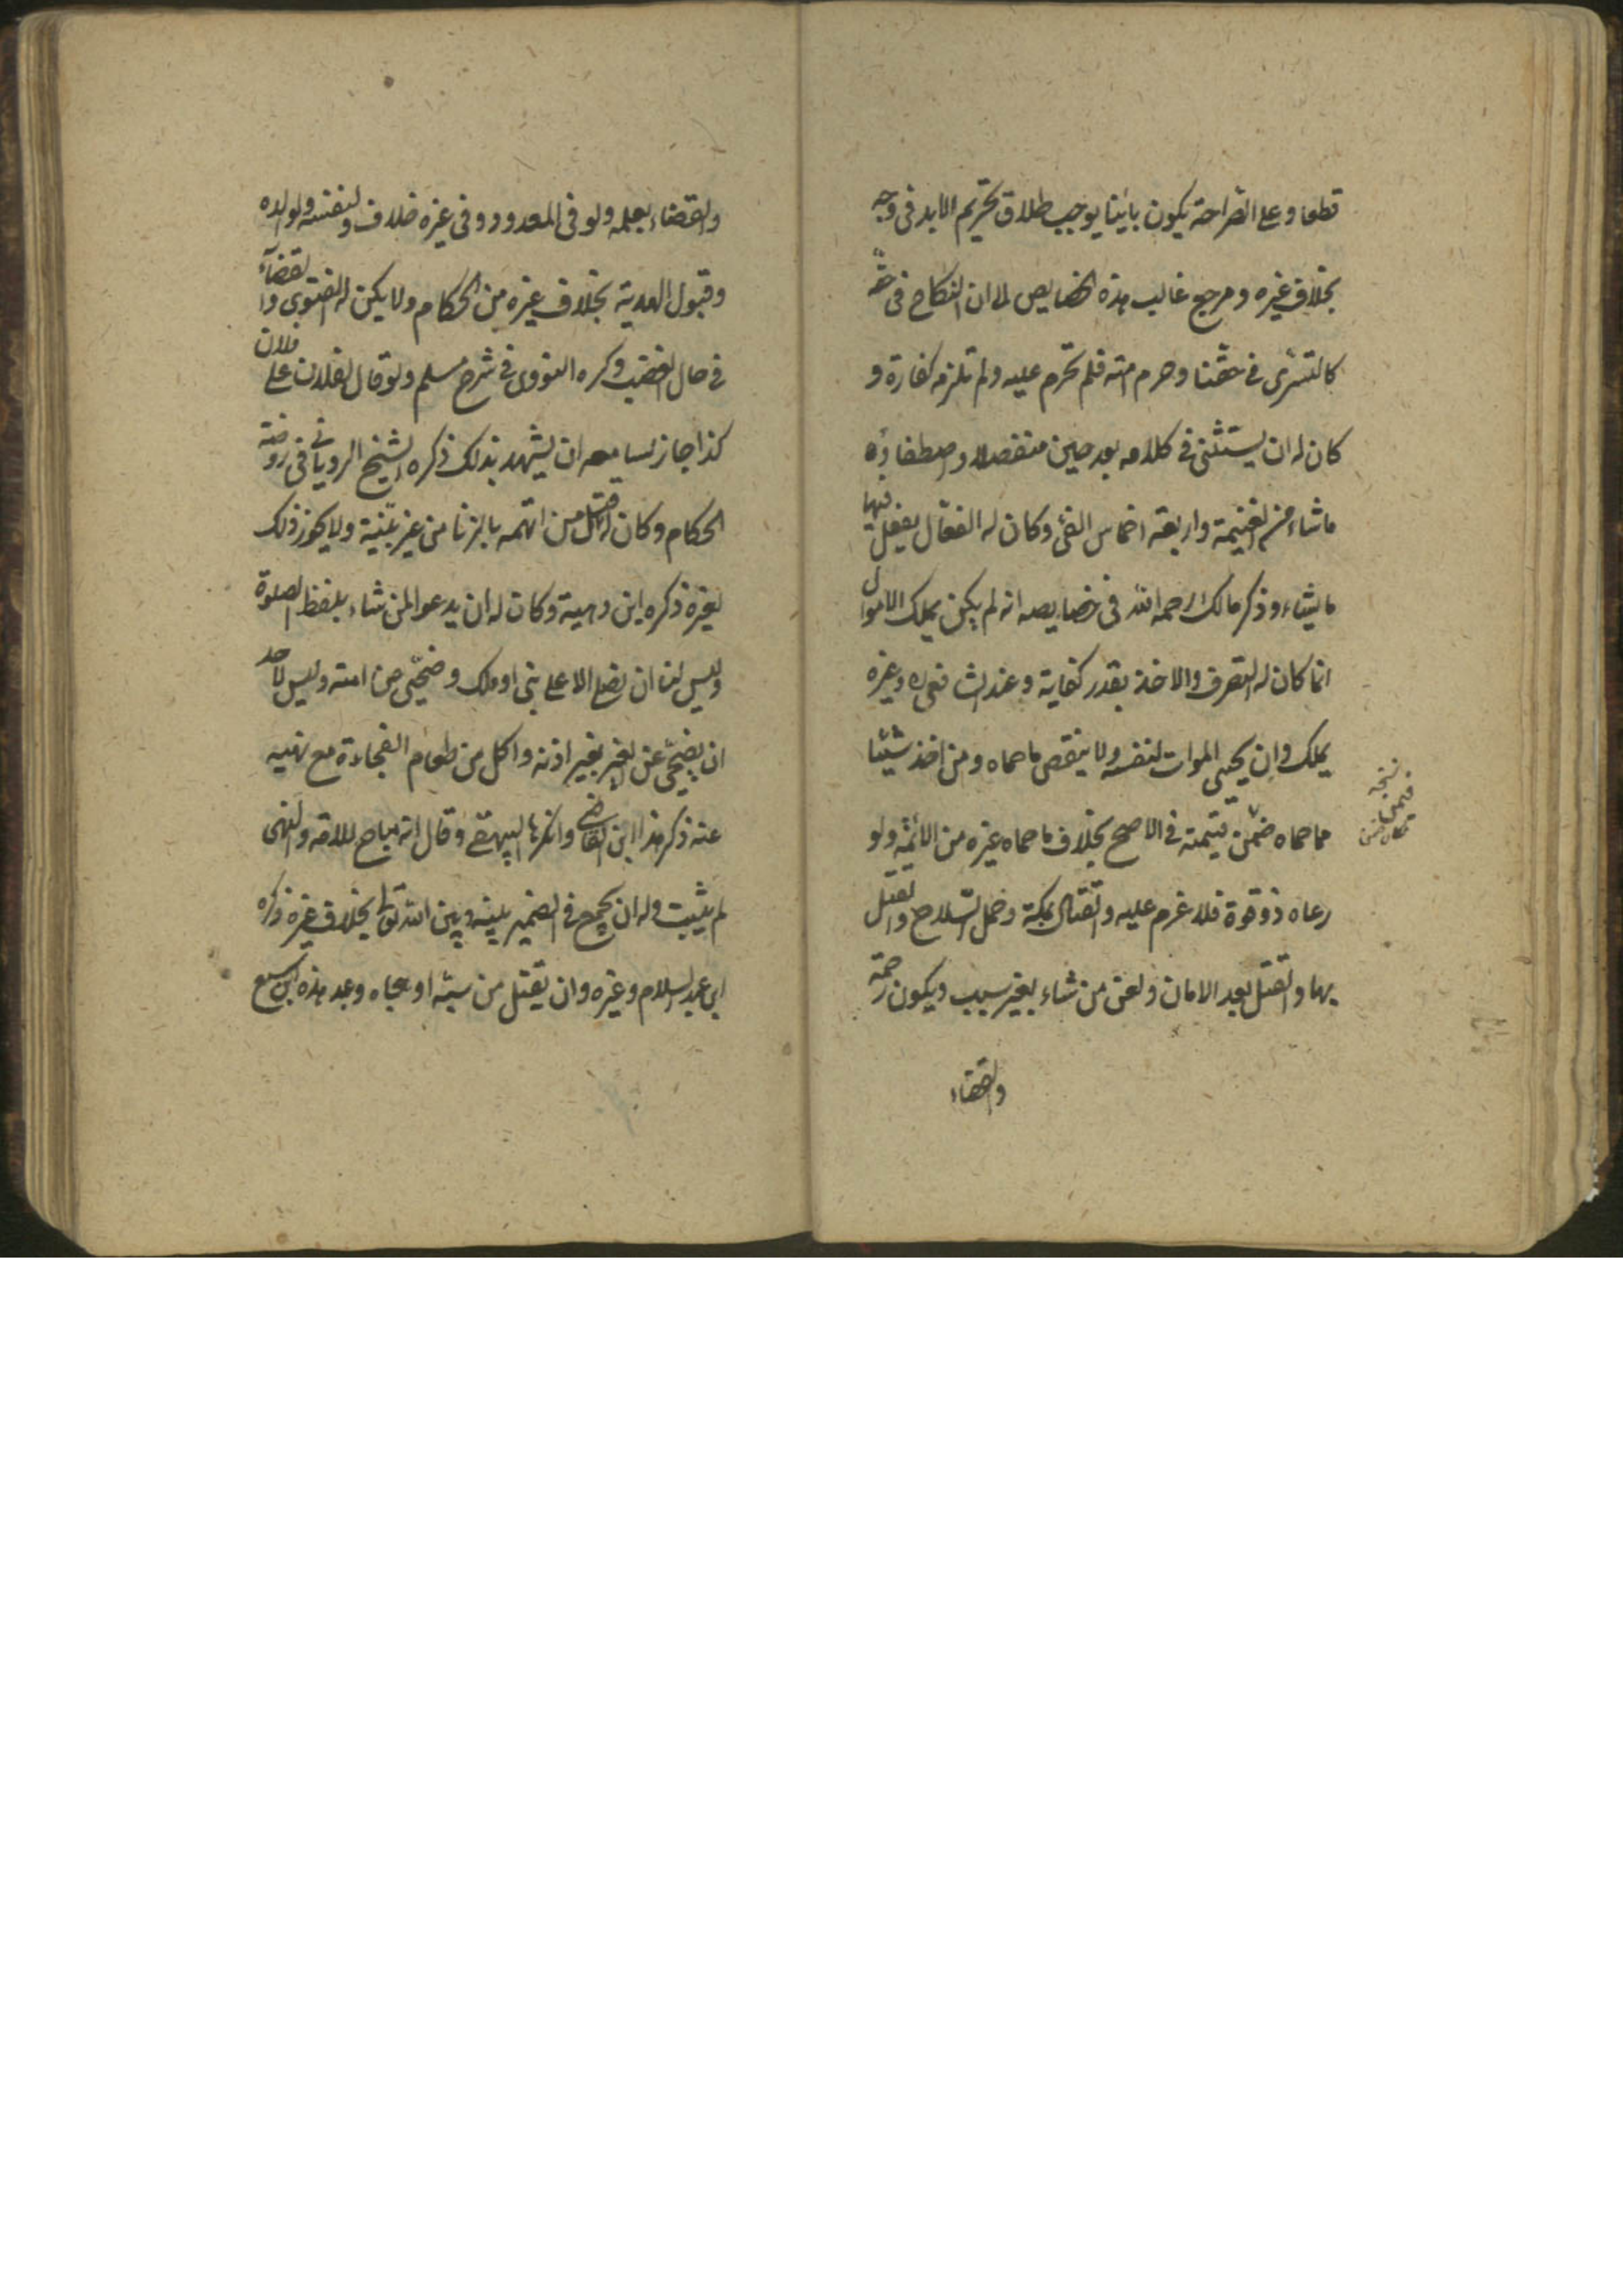 قطعا وعلى الصراحة يكون بائنا يوجب طلاق تحريم الابد في وجه
بخلاف غيره ومرجع غالب هذه الخصايص الى ان النكاح في حقه
كالتسرى في حقنا وحرم امته فلم تحرم عليه ولم تلزمه كفارة و
كان له ان يستثنى في كلامه بعد حين منفصلا واصطفاؤه
ما شاء من الغنيمة واربعة اخماس الفئ وكان له الفعال يفعل فيها
ما يشاء وذكر مالك رحمه الله في خصايصه انه لم يكن يملك الاموال
انما كان له التصرف والاخذ بقدر كفاية وعند الشافعي ره وغيره
يملك وان يحيى الموات لنفسه ولا ينقض ما حماه ومن اخذ شيئا
مما حماه ضمن قيمته في الاصح بخلاف ما حماه غيره من الائمة ولو
رعاه ذو قوة فلا غرم عليه والقتال بمكة وحمل السلاح والقتل
بها والقتل بعد الامان ولعن من شاء بغير سبب ويكون رحمة
والقضاء
نسخه
والقضاء بعلمه ولو في الحدود وفي غيره خلاف ولنفسه ولولده
وقبول الهدية بخلاف غيره من الحكام ولا يكره له الفتوى والقضاء
في حال الغضب وكره النووى في شرح مسلم ولو قال لفلان على فلان
كذا جاز لسامعه ان يشهد بذلك ذكره الشيخ الرويانى في روضة
الحكام وكان له قتل من اتهمه بالزنا من غير بينة ولا يجوز ذلك
لغيره ذكره ابن دحية وكان له ان يدعو لمن شاء بلفظ الصلوة
وليس لنا ان نصلى الا على نبى او ملك وضحى عن امته وليس لاحد
ان يضحى عن الغير بغير اذنه واكل من طعام الفجاءة مع نهيه
عنه ذكر هذا ابن القاص وانكرها البيهقى وقال انه مباح للامة والنهى
لم يثبت وله ان يجمع في الضمير بينه وبين الله تعالى بخلاف غيره ذكره
ابن عبد السلام وغيره وان يقتل من سبه او هجاه وعد هذه ابن سبع